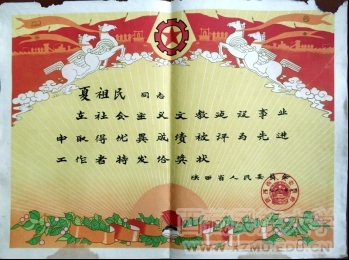 夏祖民 同志
在社会主义文教建设事业
中取得优异成绩被评为先进
工作者特发给奖状
陕西省人民委员会
WWW.XZMU.EDU.CN